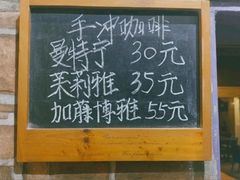 手冲咖啡
曼特宁 30元
茉莉雅 35元
加藤博雅 55元